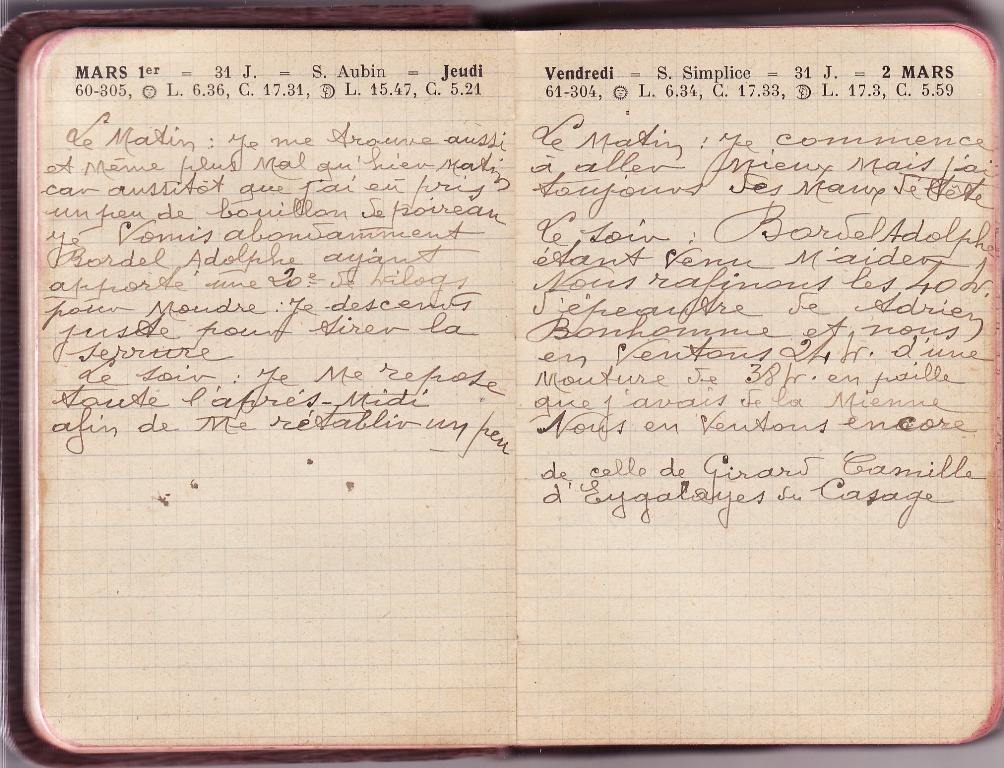 MARS 1er = 31 J. = S. Aubin = Jeudi
60-305, L. 6.36, C. 17.31, L. 15.47, C. 5.21
Le Matin : Je me trouve aussi
et Même plus Mal qu'hier Matin
car aussitôt que j'ai eu pris
un peu de bouillon de poireau
je Vomis abondamment
Bordel Adolphe ayant
apporté une 20e de kilogs
pour Moudre. Je descends
juste pour tirer la
serrure
Le soir : Je Me repose
toute l'après-Midi
afin de Me rétablir un peu
Vendredi = S. Simplice = 31 J. = 2 MARS
61-304, L. 6.34, C. 17.33, L. 17.3, C. 5.59
Le Matin : Je commence
à aller Mieux Mais j'ai
toujours des Maux de tête
Le soir : Bordel Adolphe
étant Venu M'aider
Nous rafinons les
d'épeautre de Adrien
Bonhomme et nous
en Ventons d'une
Mouture de en paille
que j'avais de la Mienne
Nous en Ventons encore
de celle de Girard Camille
d'Eygalayes du Casage